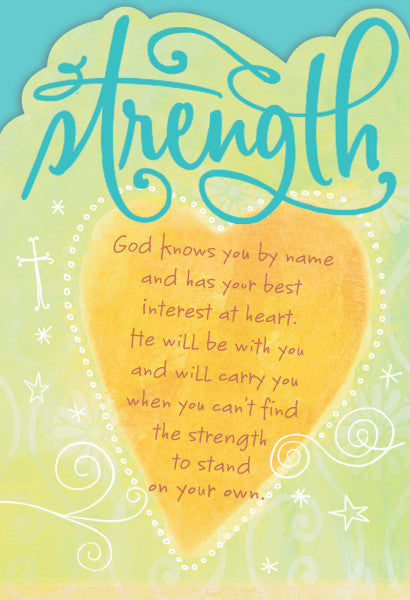 strength
God knows you by name
and has your best
interest at heart.
He will be with you
and will carry you
when you can't find
the strength
to stand
on your own.